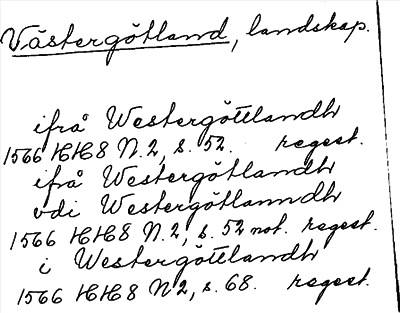 Västergötland, landskap.
ifrå Westergöttlandh
1566 HH8 N. 2, s. 52. regest.
ifrå Westergötlandh
vdi Westergötlanndh
1566 HH8 N. 2, s. 52 not. regest.
i Westergöttlandh
1566 HH8 N 2, s. 68. regest.